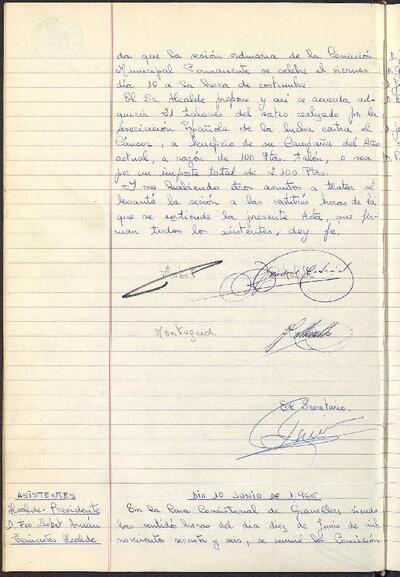 da que la sesión ordinaria de la Comisión
Municipal Permanente se celebre el viernes
día 10 a la hora de costumbre.
El Sr. Alcalde propone y así se acuerda ad-
quirir 21 talones del sorteo realizado por la
Asociación Española de la lucha contra el
Cáncer, a beneficio de su Campaña del Año
actual, a razón de 100 Ptas. talón, o sea
por un importe total de 2.100 Ptas.
Y no habiendo otros asuntos a tratar se
levantó la sesión a las veintitrés horas de la
que se extiende la presente Acta, que fir-
man todos los asistentes, doy fe.
Montagud
El Secretario
ASISTENTES
Alcalde-Presidente
D. Fco. Llobet Arnán
Tenientes Alcalde
DIA 10 JUNIO DE 1.966.
En la Casa Consistorial de Granollers siendo
las veintidós horas del día diez de Junio de mil
novecientos sesenta y seis, se reunió la Comisión